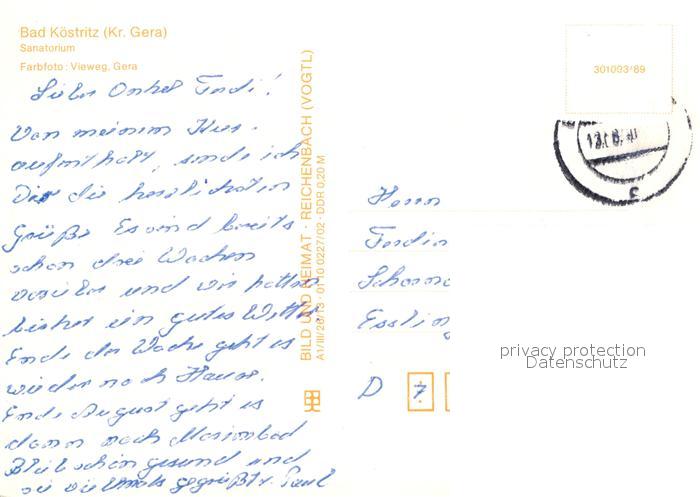 Bad Köstritz (Kr. Gera)
Sanatorium
Farbfoto: Vieweg, Gera
Lieber Onkel Ferdi!
Von meinem Kur-
aufenthalt, sende ich
Dir die herzlichsten
Grüße. Es sind bereits
schon drei Wochen
vorüber und wir hatten
bisher ein gutes Wetter
Ende der Woche geht es
wieder nach Hause.
Ende August geht es
dann nach Marienbad
Bleib schön gesund und
sei vielmals gegrüßt v. Paul
BILD UND HEIMAT · REICHENBACH (VOGTL)
A1/III/26/13 · 01 10 0227/02 · DDR 0,20 M
301093/89
Herrn
Ferdin
Essling
D 7
privacy protection
Datenschutz